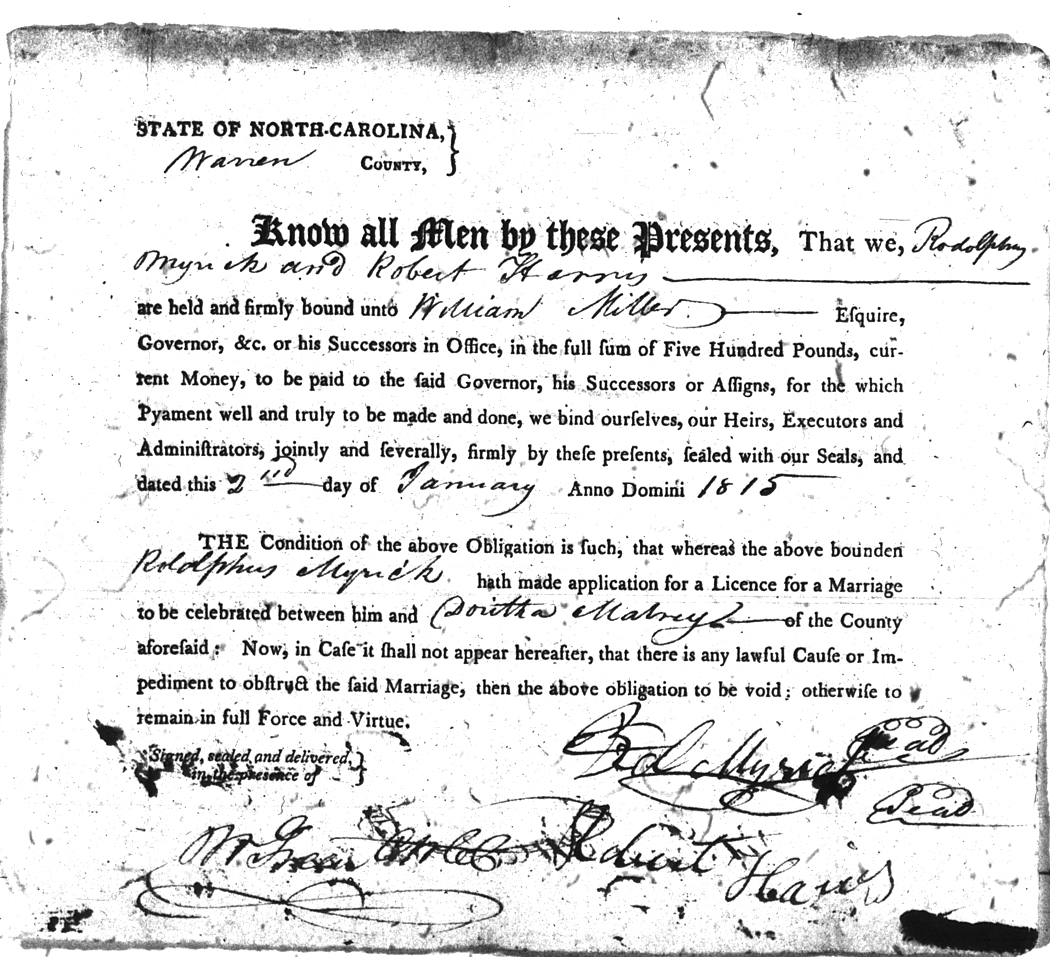 STATE OF NORTH-CAROLINA, }
Warren COUNTY, }
Know all Men by these Presents, That we, Rodolphus
Myrick and Robert Harris
are held and firmly bound unto William Miller Eſquire,
Governor, &c. or his Successors in Office, in the full ſum of Five Hundred Pounds, cur-
rent Money, to be paid to the ſaid Governor, his Successors or Aſſigns, for the which
Pyament well and truly to be made and done, we bind ourselves, our Heirs, Executors and
Adminiſtrators, jointly and ſeverally, firmly by theſe preſents, ſealed with our Seals, and
dated this 2nd day of January Anno Domini 1815
THE Condition of the above Obligation is ſuch, that whereas the above bounden
Rodolphus Myrick hath made application for a Licence for a Marriage
to be celebrated between him and of the County
aforeſaid: Now, in Caſe it ſhall not appear hereafter, that there is any lawful Cauſe or Im-
pediment to obſtruct the ſaid Marriage, then the above obligation to be void: otherwiſe to
remain in full Force and Virtue.
Signed, sealed and delivered, }
in the presence of }
Rod Myrick Seal
Seal
Wm Green
Robert Harris